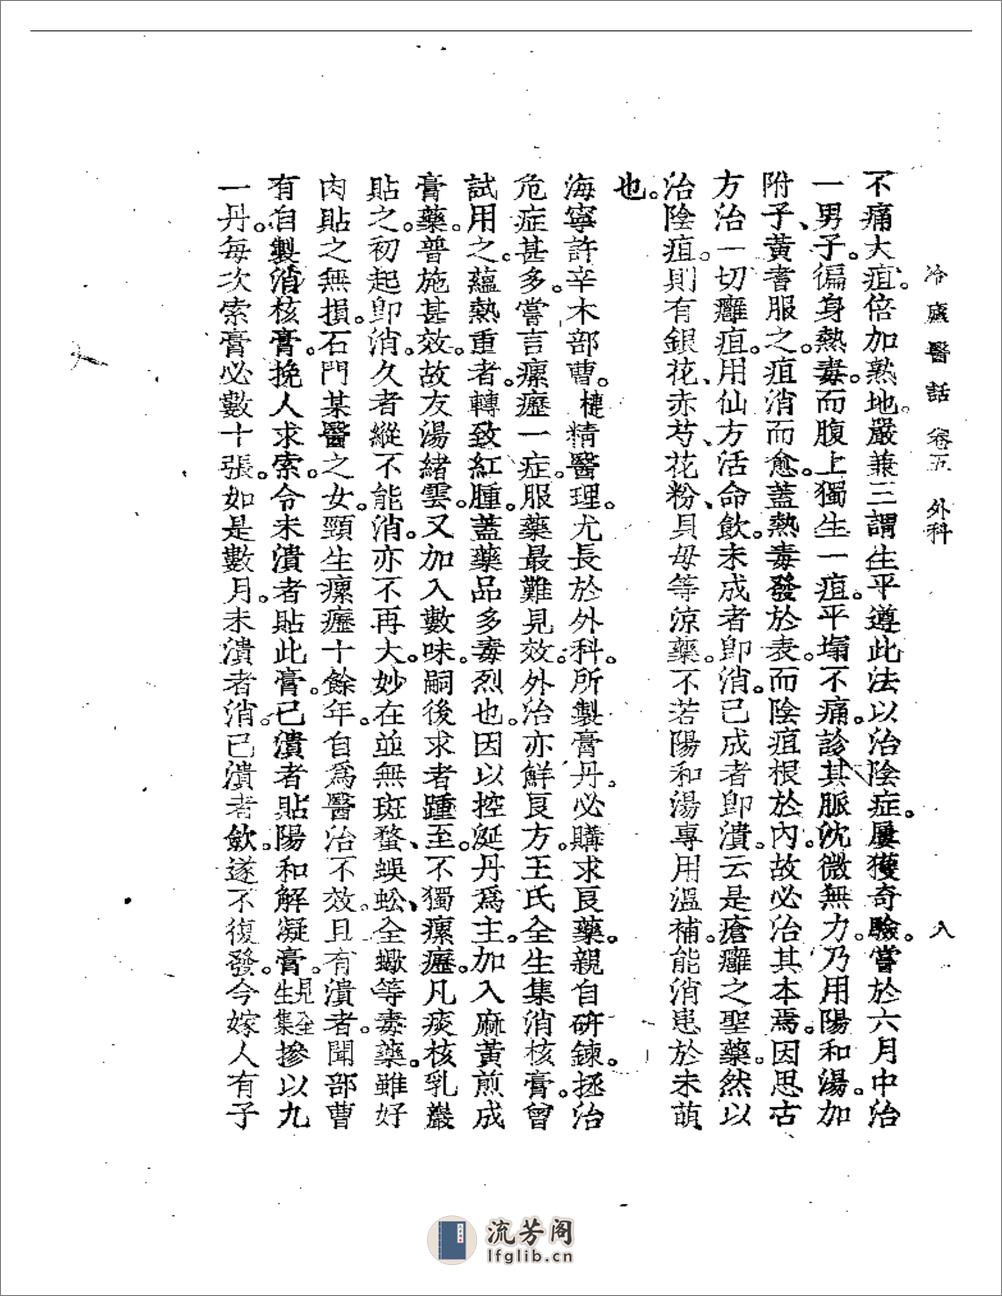 冷廬醫話 卷五 外科 八
不痛大疽。倍加熟地。嚴兼三謂生平遵此法以治陰症。屢獲奇驗。嘗於六月中治
一男子。徧身熱毒。而腹上獨生一疽。平塌不痛。診其脈沈微無力。乃用陽和湯。加
附子、黃耆服之。疽消而愈。蓋熱毒發於表。而陰疽根於內。故必治其本焉。因思古
方治一切癰疽。用仙方活命飲。未成者卽消。已成者卽潰。云是瘡癰之聖藥。然以
治陰疽。則有銀花、赤芍、花粉、貝母等涼藥。不若陽和湯專用溫補。能消患於未萌
也。
海寧許辛木部曹。楗精醫理。尤長於外科。所製膏丹。必購求良藥。親自研鍊。拯治
危症甚多。嘗言瘰癧一症。服藥最難見效。外治亦鮮良方。王氏全生集消核膏。曾
試用之。蘊熱重者。轉致紅腫。蓋藥品多毒烈也。因以控涎丹爲主。加入麻黃煎成
膏藥。普施甚效。故友湯緒雲。又加入數味。嗣後求者踵至。不獨瘰癧。凡痰核乳巖
貼之。初起卽消。久者縱不能消。亦不再大。妙在並無斑蝥、蜈蚣、全蠍等毒藥。雖好
肉貼之無損。石門某醫之女。頸生瘰癧十餘年。自爲醫治不效。且有潰者。聞部曹
有自製消核膏。挽人求索。令未潰者貼此膏。已潰者貼陽和解凝膏。見全生集摻以九
一丹。每次索膏必數十張。如是數月。未潰者消。已潰者斂。遂不復發。今嫁人有子
流芳阁
lfglib.cn